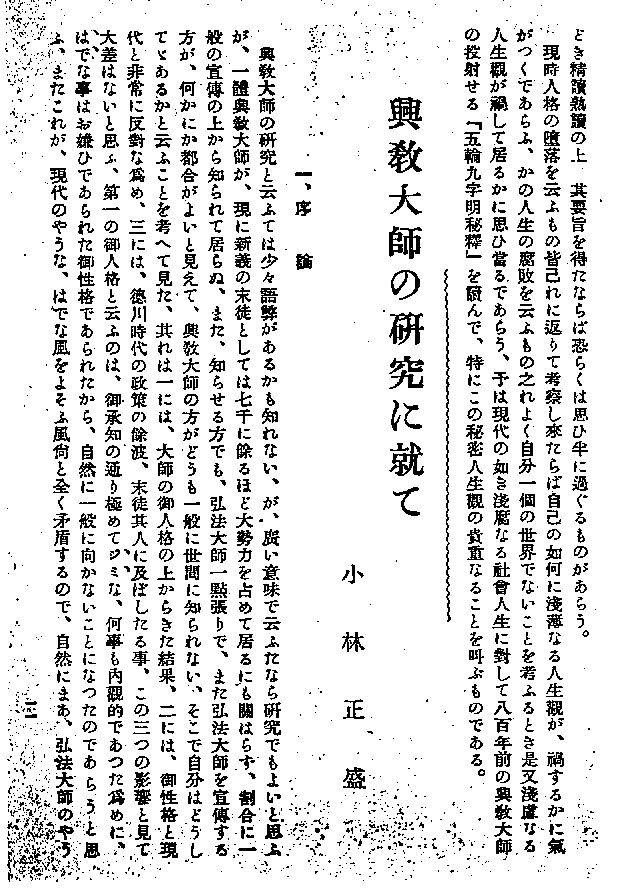 どき精讀熟讀の上　其要旨を得たならば恐らくは思ひ半に過ぐるものがあらう。
現時人格の墮落を云ふもの皆己れに返りて考察し來たらば自己の如何に淺薄なる人生觀が、禍するかに氣
がつくであらふ、かの人生の腐敗を云ふもの之れよく自分一個の世界でないことを考ふるとき是又淺慮なる
人生觀が禍して居るかに思ひ當るであらう、予は現代の如き淺腐なる社會人生に對して八百年前の興敎大師
の投射せる「五輪九字明秘釋」を讀んで、特にこの秘密人生觀の貴重なることを叫ぶものである。
興敎大師の硏究に就て
小林正盛
一、序論
興敎大師の硏究と云ふては少々語弊があるかも知れない、が、廣い意味で云ふたなら硏究でもよいと思ふ
が、一體興敎大師が、現に新義の末徒としては七千に餘るほど大勢力を占めて居るにも關はらず、割合に一
般の宣傳の上から知られて居らぬ、また、知らせる方でも、弘法大師一點張りで、また弘法大師を宣傳する
方が、何かにか都合がよいと見えて、興敎大師の方がどうも一般に世間に知られない、そこで自分はどうし
てゞあるかと云ふことを考へて見た、其れは一には、大師の御人格の上からきた結果、二には、御性格と現
代と非常に反對な爲め、三には、德川時代の政策の餘波、末徒其人に及ぼしたる事、この三つの影響と見て
大差はないと思ふ、第一の御人格と云ふのは、御承知の通り極めてジミな、何事も內觀的であつた爲めに、
はでな事はお嫌ひであられた御性格であられたから、自然に一般に向かないことになつたのであらうと思
ふ、またこれが、現代のやうな、はでな風をよそふ風尙と全く矛盾するので、自然にまあ、弘法大師のやう